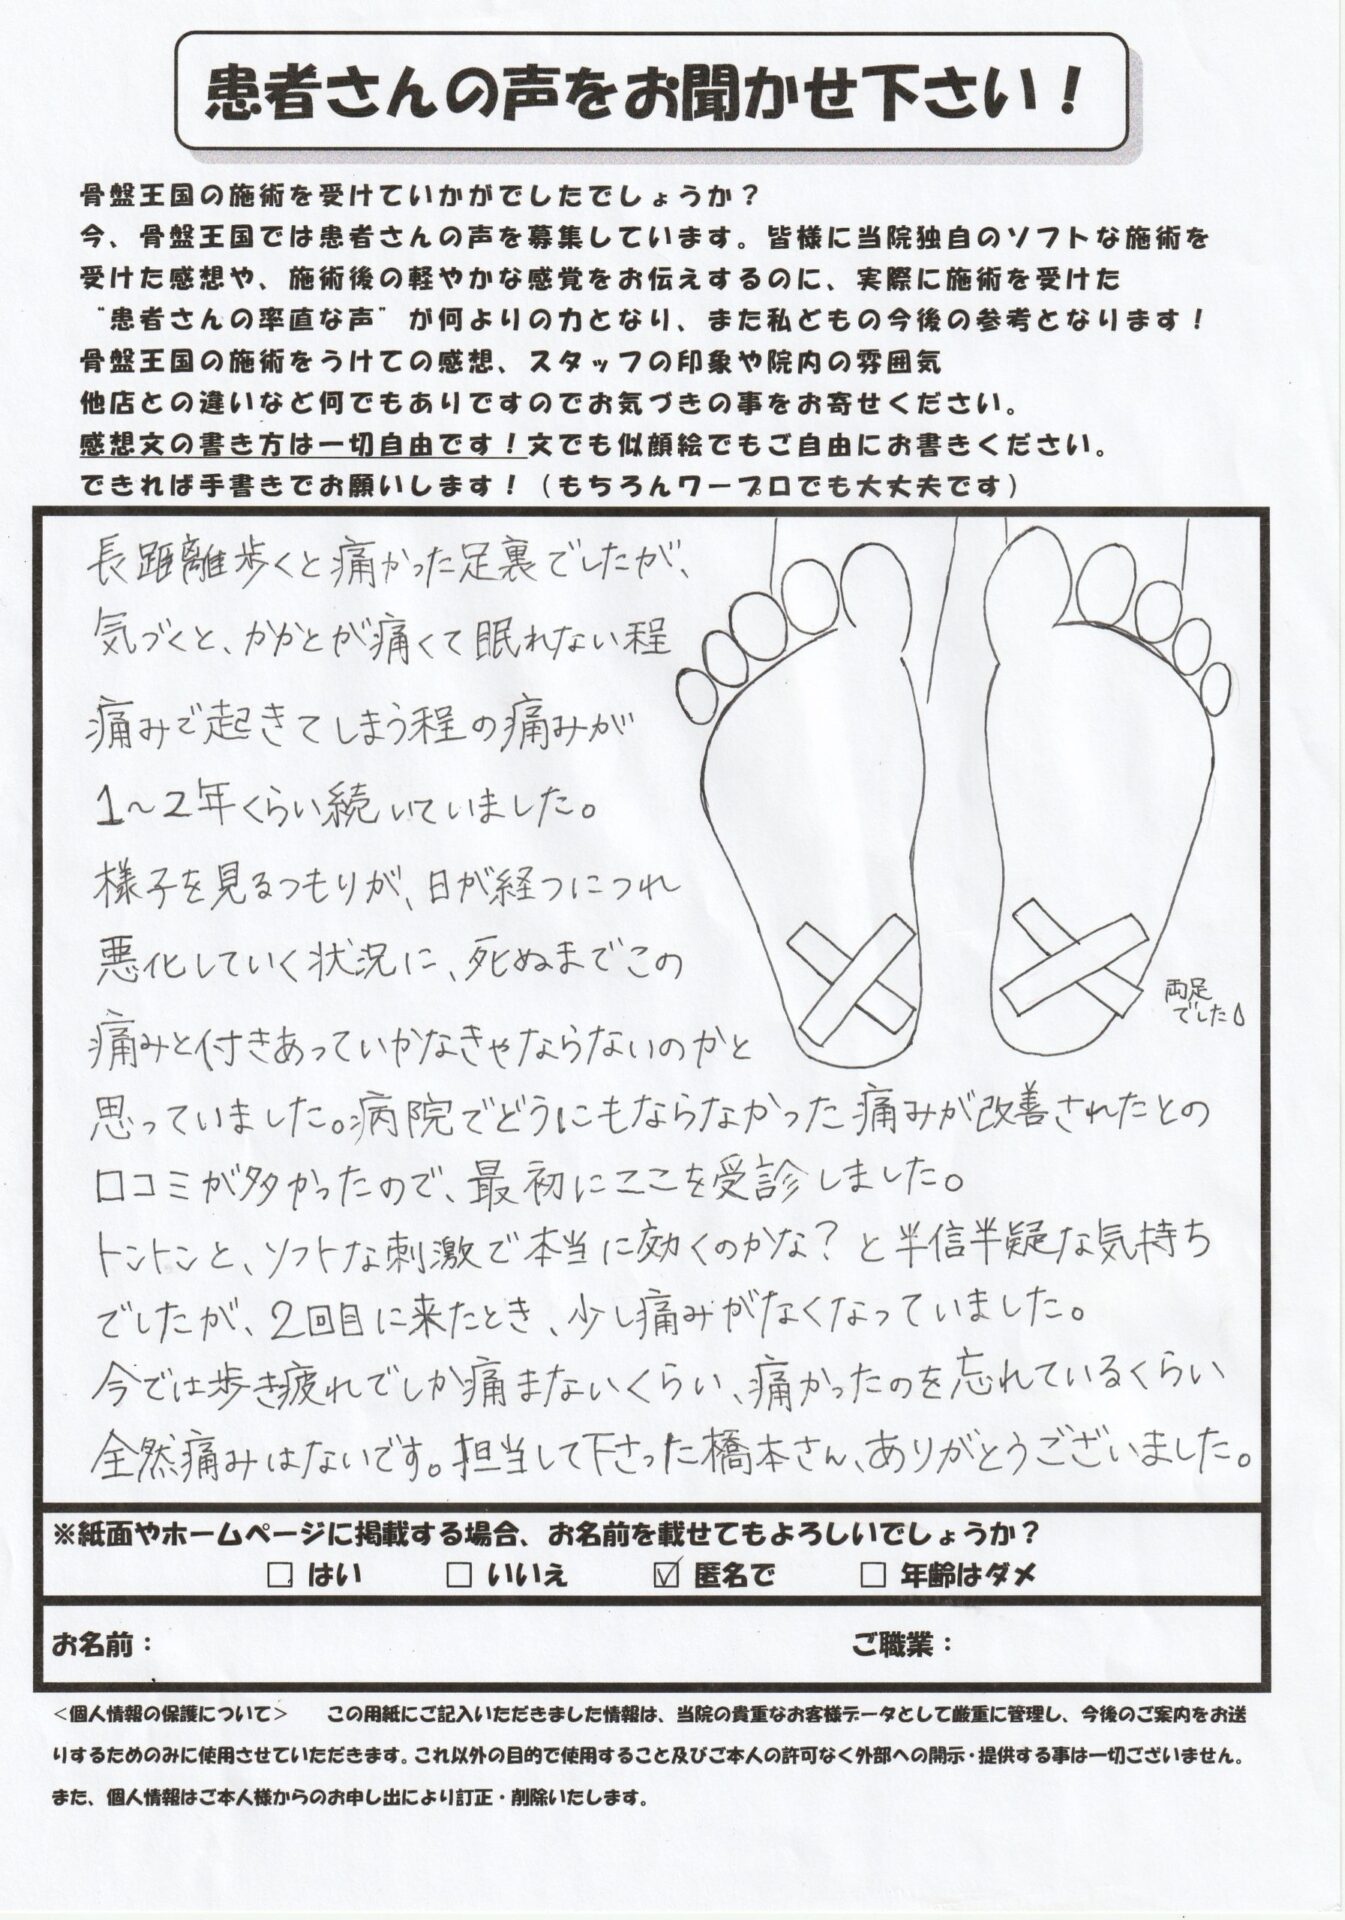 患者さんの声をお聞かせ下さい！
骨盤王国の施術を受けていかがでしたでしょうか？
今、骨盤王国では患者さんの声を募集しています。皆様に当院独自のソフトな施術を
受けた感想や、施術後の軽やかな感覚をお伝えするのに、実際に施術を受けた
“患者さんの率直な声”が何よりの力となり、また私どもの今後の参考となります！
骨盤王国の施術をうけての感想、スタッフの印象や院内の雰囲気
他店との違いなど何でもありですのでお気づきの事をお寄せください。
感想文の書き方は一切自由です！文でも似顔絵でもご自由にお書きください。
できれば手書きでお願いします！（もちろんワープロでも大丈夫です）
長距離歩くと痛かった足裏でしたが、
気づくと、かかとが痛くて眠れない程
痛みで起きてしまう程の痛みが
1～2年くらい続いていました。
様子を見るつもりが、日が経つにつれ
悪化していく状況に、死ぬまでこの
痛みと付きあっていかなきゃならないのかと
思っていました。病院でどうにもならなかった痛みが改善されたとの
口コミが多かったので、最初にここを受診しました。
トントンと、ソフトな刺激で本当に効くのかな？と半信半疑な気持ち
でしたが、2回目に来たとき、少し痛みがなくなっていました。
今では歩き疲れでしか痛まないくらい、痛かったのを忘れているくらい
全然痛みはないです。担当して下さった橋本さん、ありがとうございました。
両足
でした
※紙面やホームページに掲載する場合、お名前を載せてもよろしいでしょうか？
□ はい □ いいえ ☑ 匿名で □ 年齢はダメ
お名前： ご職業：
＜個人情報の保護について＞ この用紙にご記入いただきました情報は、当院の貴重なお客様データとして厳重に管理し、今後のご案内をお送
りするためのみに使用させていただきます。これ以外の目的で使用すること及びご本人の許可なく外部への開示・提供する事は一切ございません。
また、個人情報はご本人様からのお申し出により訂正・削除いたします。